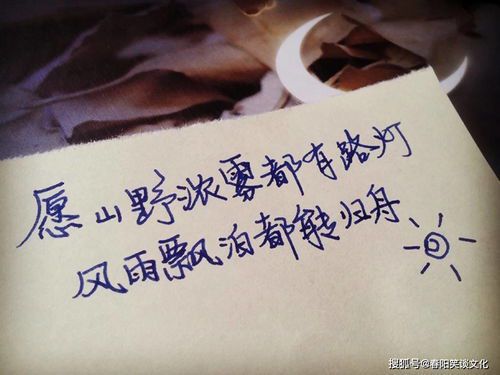 愿山野浓雾都有路灯
风雨飘泊都转归舟
搜狐号@春阳笑谈文化